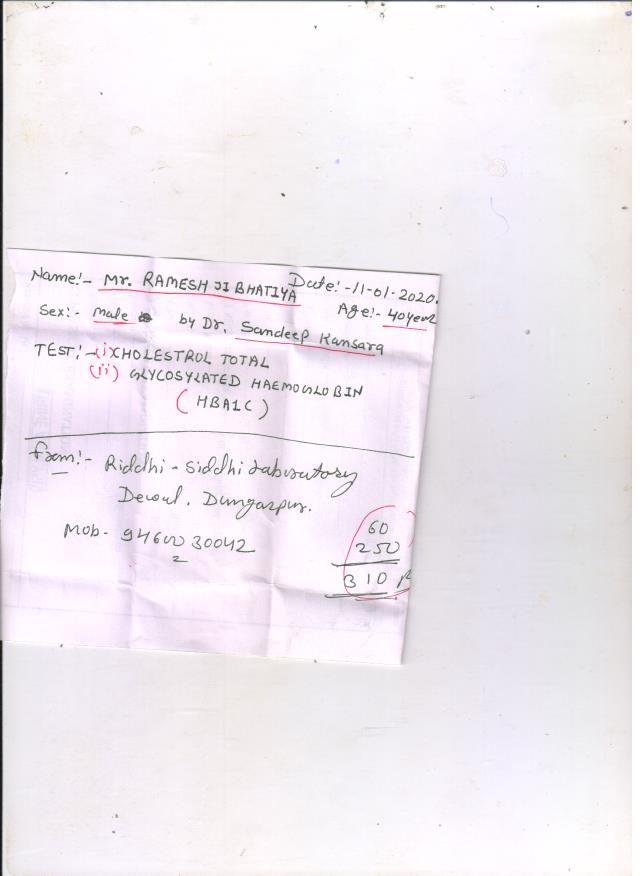 Name:- Mr. RAMESH JI BHATIYA Date:-11-01-2020.
Sex:- Male by Dr. Sandeep Kansara Age:- 40 year
TEST:- (i) CHOLESTROL TOTAL
(ii) GLYCOSYLATED HAEMOGLOBIN
(HBA1C)
from:- Riddhi-Siddhi Laboratory
Dewal. Dungarpur.
Mob- 9460030042
60
250
310